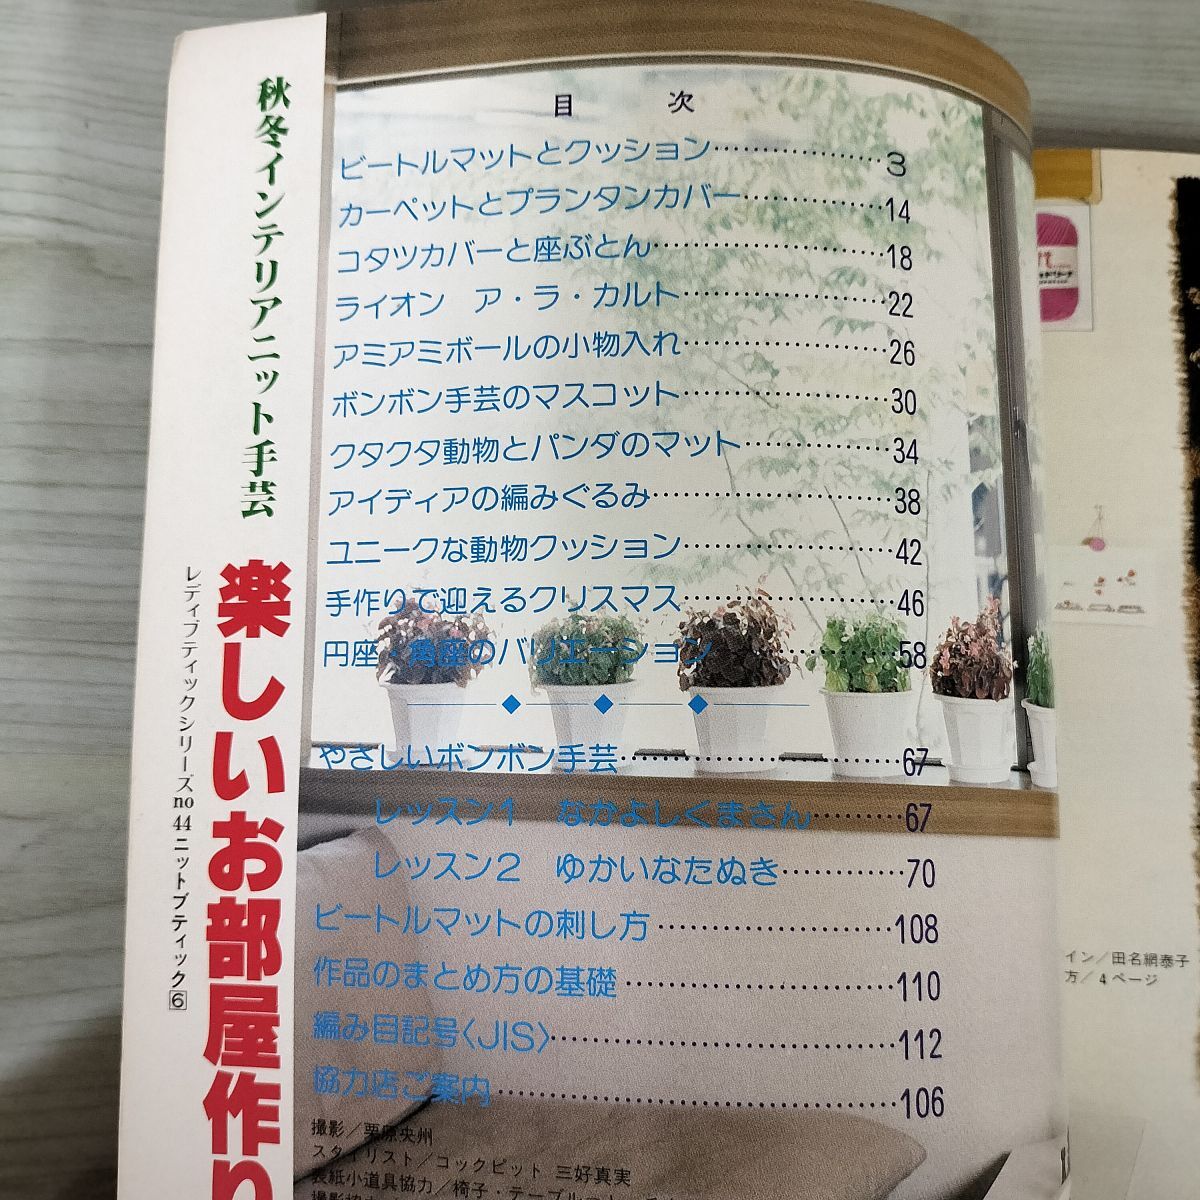 秋冬インテリアニット手芸
楽しいお部屋作り
レディブティックシリーズno44ニットブティック⑥
目次
ビートルマットとクッション………………3
カーペットとプランタンカバー……………14
コタツカバーと座ぶとん……………………18
ライオン ア・ラ・カルト…………………22
アミアミボールの小物入れ…………………26
ボンボン手芸のマスコット…………………30
クタクタ動物とパンダのマット……………34
アイディアの編みぐるみ……………………38
ユニークな動物クッション…………………42
手作りで迎えるクリスマス…………………46
円座・角座のバリエーション………………58
やさしいボンボン手芸………………………67
レッスン1 なかよしくまさん………67
レッスン2 ゆかいなたぬき…………70
ビートルマットの刺し方……………………108
作品のまとめ方の基礎………………………110
編み目記号〈JIS〉……………………………112
協力店ご案内…………………………………106
撮影／栗原央州
スタイリスト／コックピット 三好真実
表紙小道具協力／椅子・テーブル
イン／田名網泰子
方／4ページ